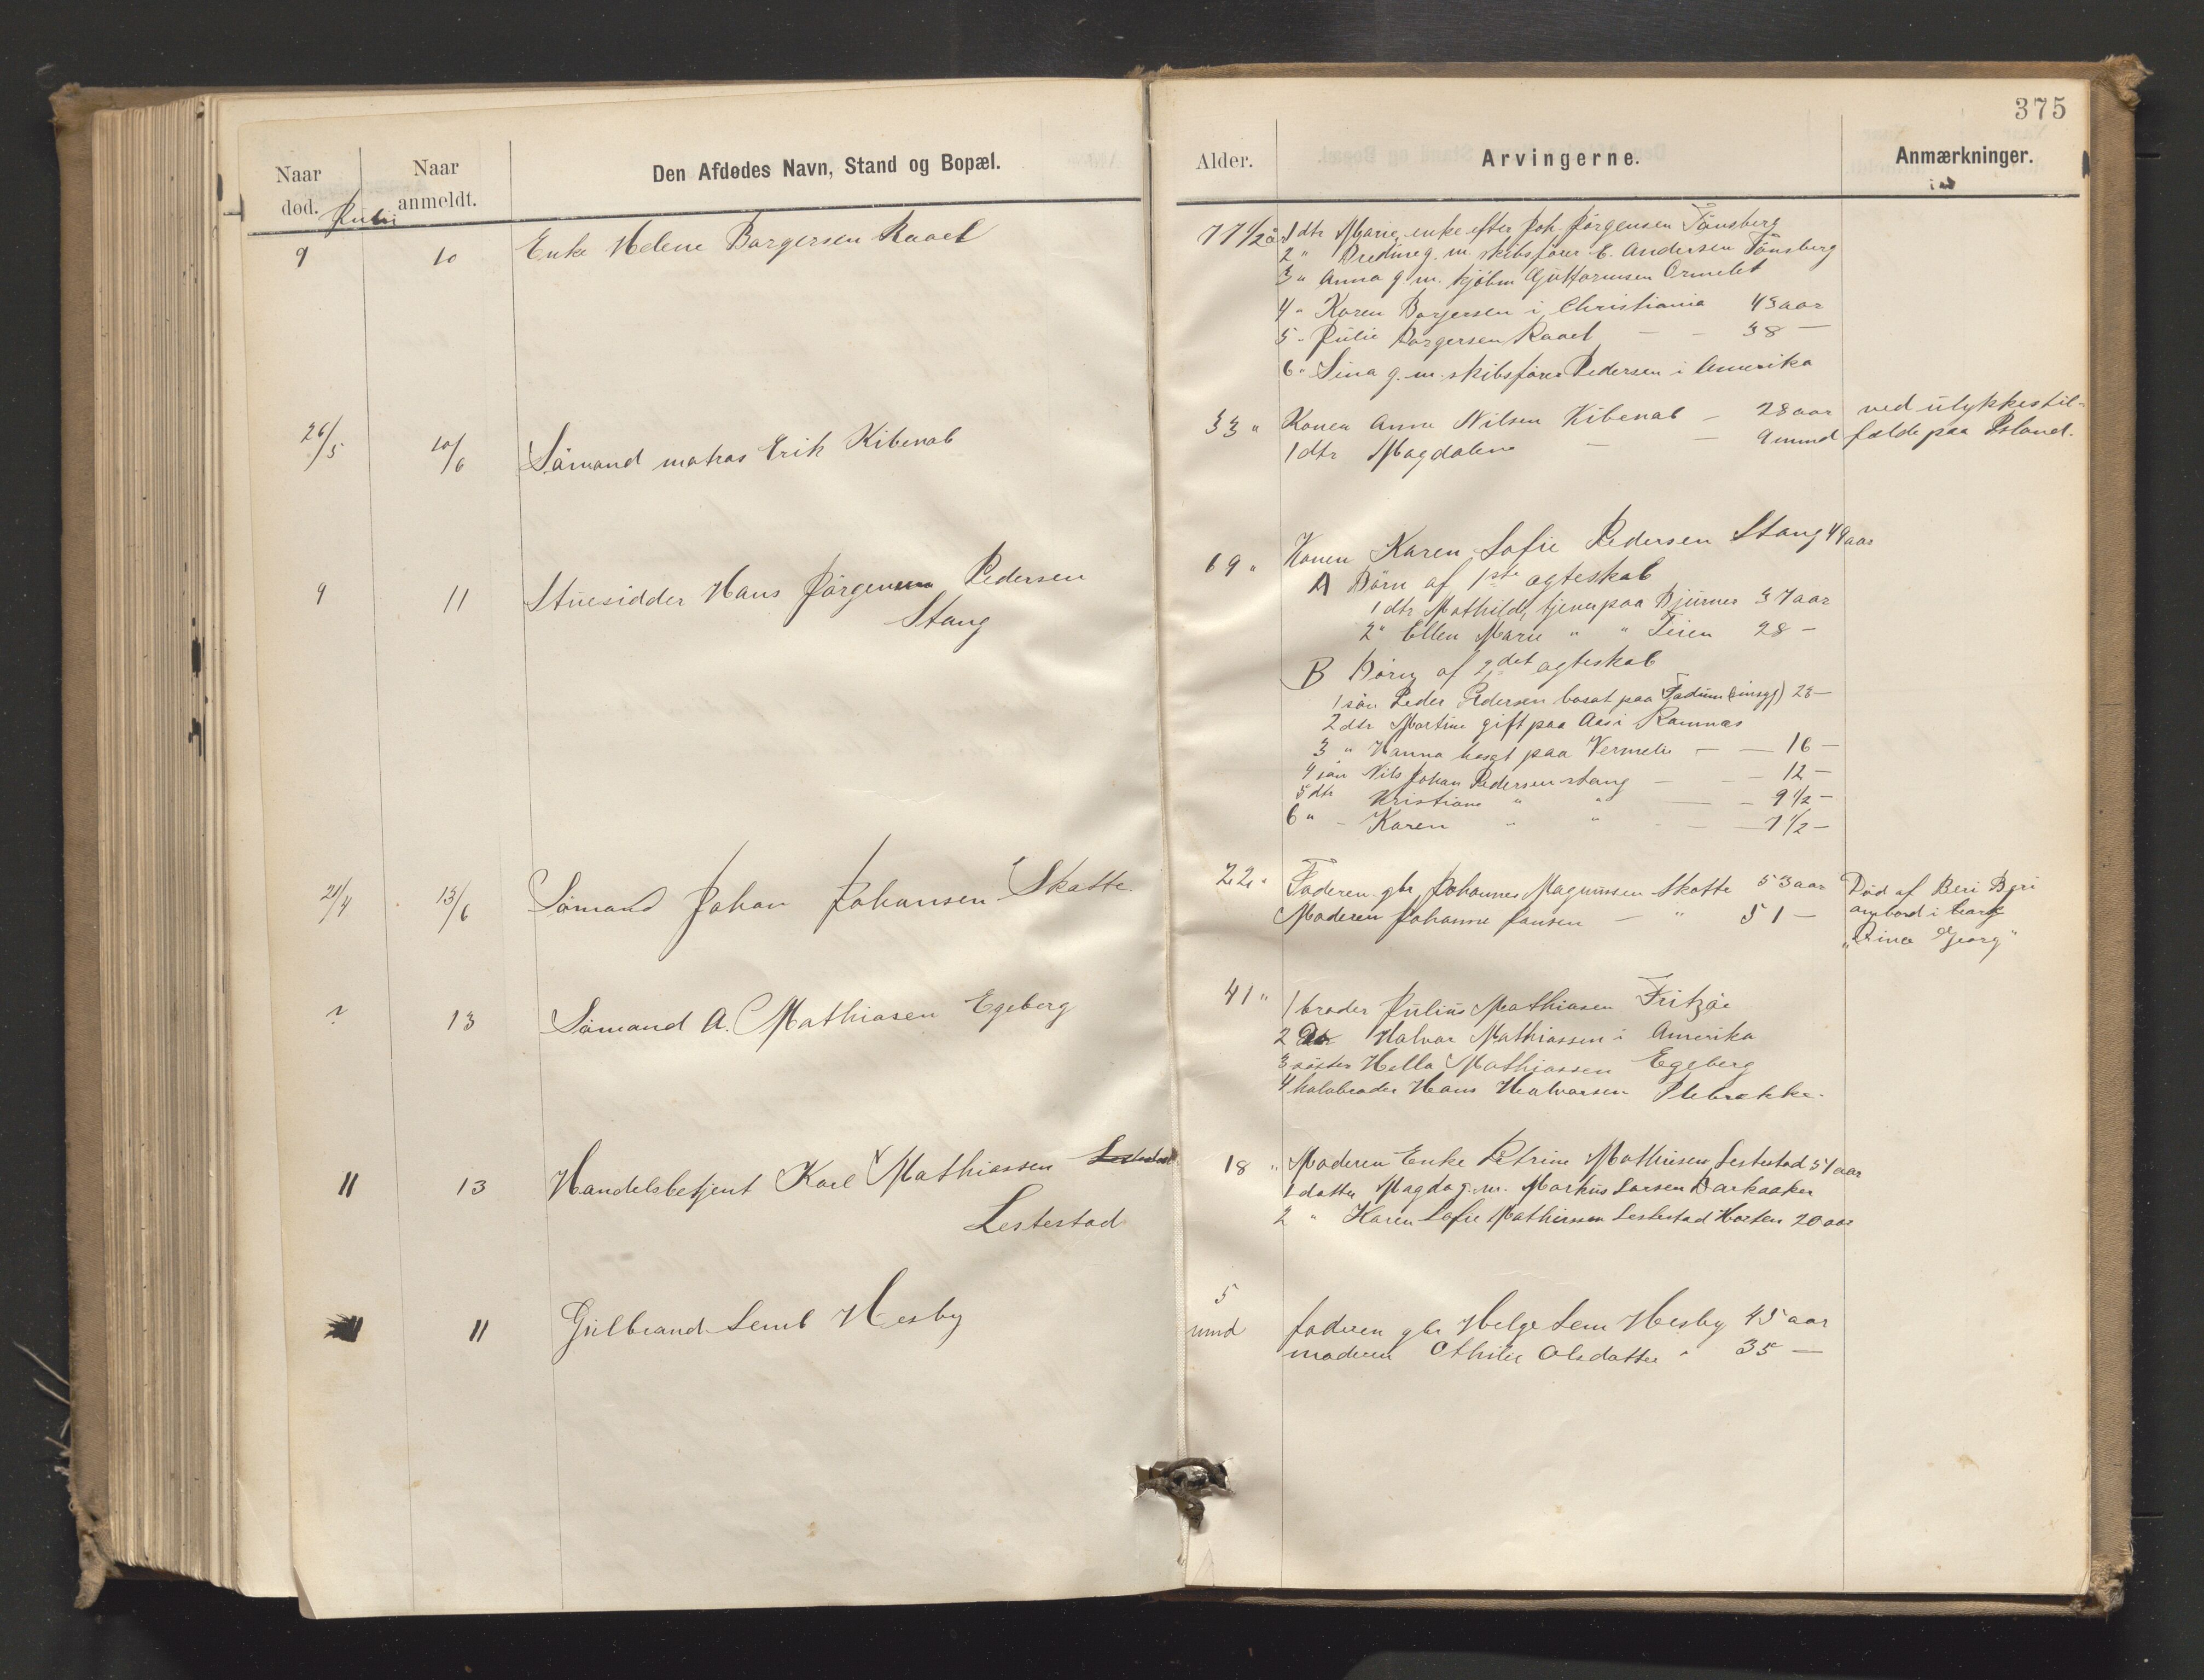 375
Naar død.
Naar anmeldt.
Den Afdødes Navn, Stand og Bopæl.
Alder.
Arvingerne.
Anmærkninger.
Juni
9 10 Enke Helene Borgersen Raael
77 1/2 år 1 dtr Marie enke efter Joh. Jörgensen Tönsberg
2 " g. m. skibsförer E. Andersen Tönsberg
3 " Anna g. m. kjöbm Guttormsen Ormelet
4 " Karen Borgersen i Christiania 43 aar
5 " Julie Borgersen Raael — — 38 —
6 " Sina g. m. skibsförer Pedersen i Amerika
26/5 10/6 Sömand matros Erik Kibenab
33 " Konen Anna Nilsen Kibenab — 28 aar
1 dtr Magdalene — — 9 mnd
ved ulykkestil-
fælde paa Island.
9 11 Stuesidder Hans Jörgen Pedersen
Stang
69 " Konen Karen Sofie Pedersen Stang 49 aar
A Börn af 1ste ægteskab
1 dtr Mathilde, tjener paa Bjürnes 37 aar
2 " Ellen Marie " " Teien 28 —
B Börn af 2det ægteskab
1 sön Peder Pedersen bosat paa Fadum 23 —
2 dtr Martine gift paa Aas i Ramnæs
3 " Hanna bosat paa Vermelie — — 16 —
4 sön Nils Johan Pedersen Stang — — 12 —
5 dtr Kristiane " " — — 9 1/2 —
6 " — Karen " " — — 7 1/2 —
21/4 13/6 Sömand Johan Johansen Skatte.
22 " Faderen gbr Johannes Magnussen Skatte 53 aar
Moderen Johanne Jansen — " 51 —
Död af Beri Beri
ombord i bark
"Prince Georg"
? 13 Sömand A. Mathiasen Egeberg
41 " 1 broder Julius Mathiasen Fritzöe
2 Do Halvor Mathiassen i Amerika
3 söster Hella Mathiassen Egeberg
4 halvbroder Hans Halvorsen Plebrekke.
11 13 Handelsbetjent Karl Mathiassen
Lestestad
18 " Moderen Enke Petrine Mathisen Lestestad 51 aar
1 datter Magda g. m. Markus Larsen Barkaaker
2 " Karen Sofie Mathiesen Lestestad Horten 20 aar
11 Gulbrand Semb Hesby
5
mnd
faderen gbr Helge Sem Hesby 45 aar
moderen Othilie Olsdatter " 35 —